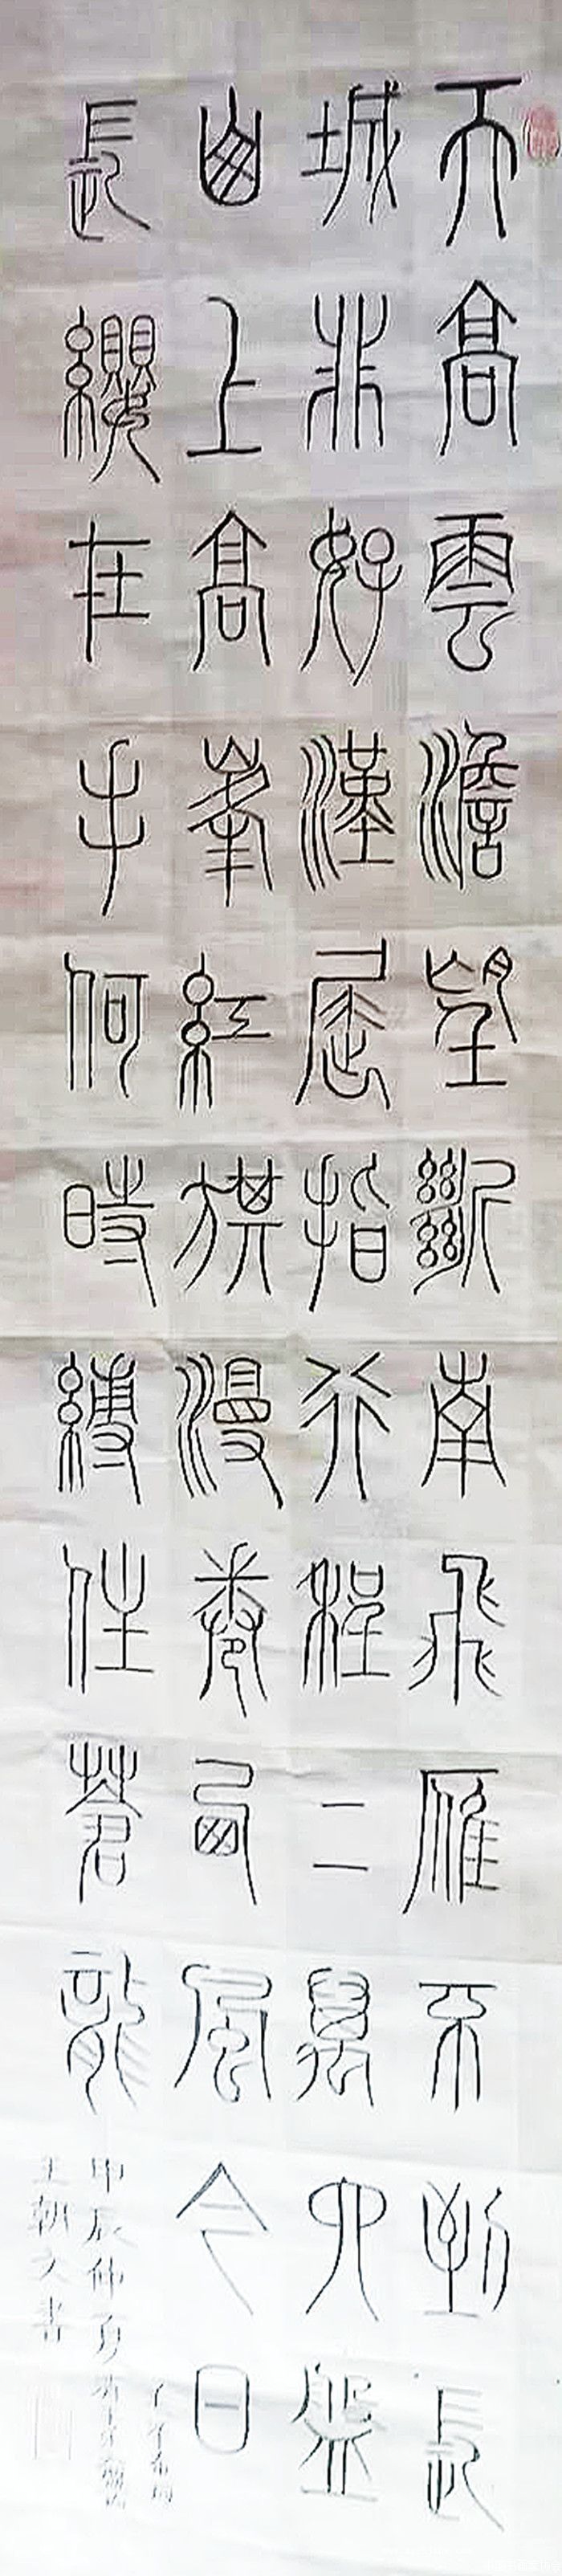 天高雲澹望斷南飛雁不到長
城非好漢屈指行程二萬六盤
山上高峯紅旗漫卷西風今日
長纓在手何時縛住蒼龍
甲辰仲夏
王朝書